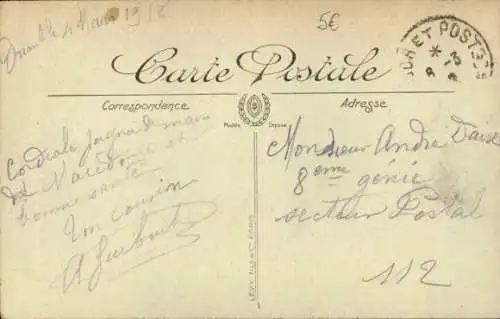 4 Mars 1918
5€
Carte Postale
Correspondance
Adresse
Modèle Déposé
Cordiale poignée de main
de Macédoine et
bonne santé
Ton cousin
Monsieur André
8ème génie
secteur Postal
112